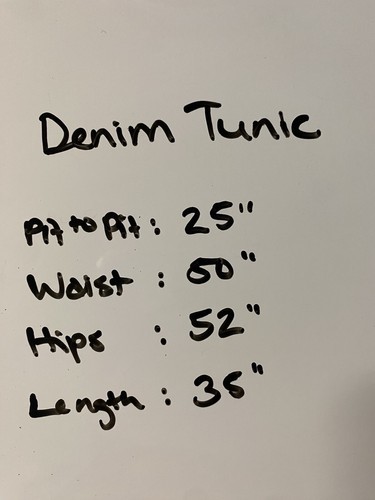 Denim Tunic
Pit to Pit : 25"
Waist : 50"
Hips : 52"
Length : 35"